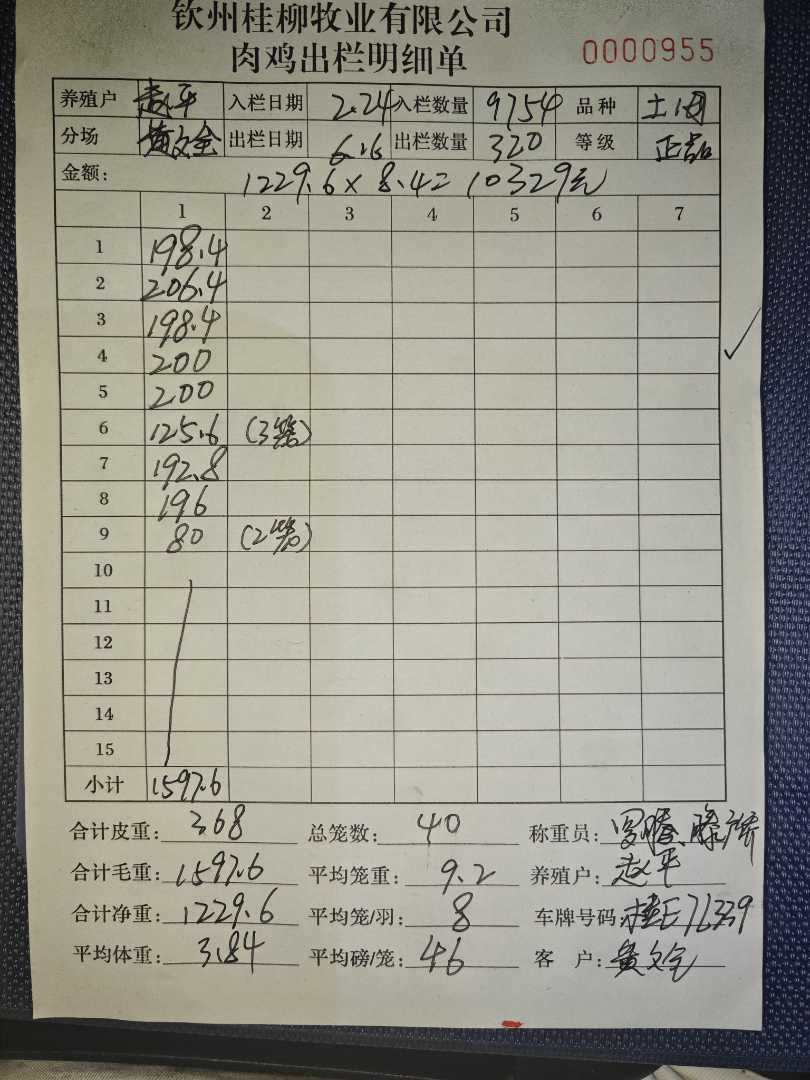 钦州桂柳牧业有限公司
肉鸡出栏明细单 0000955
养殖户 赵平 入栏日期 2.24 入栏数量 9754 品种 土
分场 黄文全 出栏日期 6.6 出栏数量 320 等级 正品
金额: 1229.6 x 8.4= 10329元
1 2 3 4 5 6 7
1 198.4
2 206.4
3 198.4
4 200
5 200
6 125.6 (3笼)
7 192.8
8 196
9 80 (2笼)
10
11
12
13
14
15
小计 1597.6
合计皮重: 368 总笼数: 40 称重员: 罗腾、滕
合计毛重: 1597.6 平均笼重: 9.2 养殖户: 赵平
合计净重: 1229.6 平均笼/羽: 8 车牌号码: 桂E76339
平均体重: 3.84 平均磅/笼: 46 客户: 黄文全